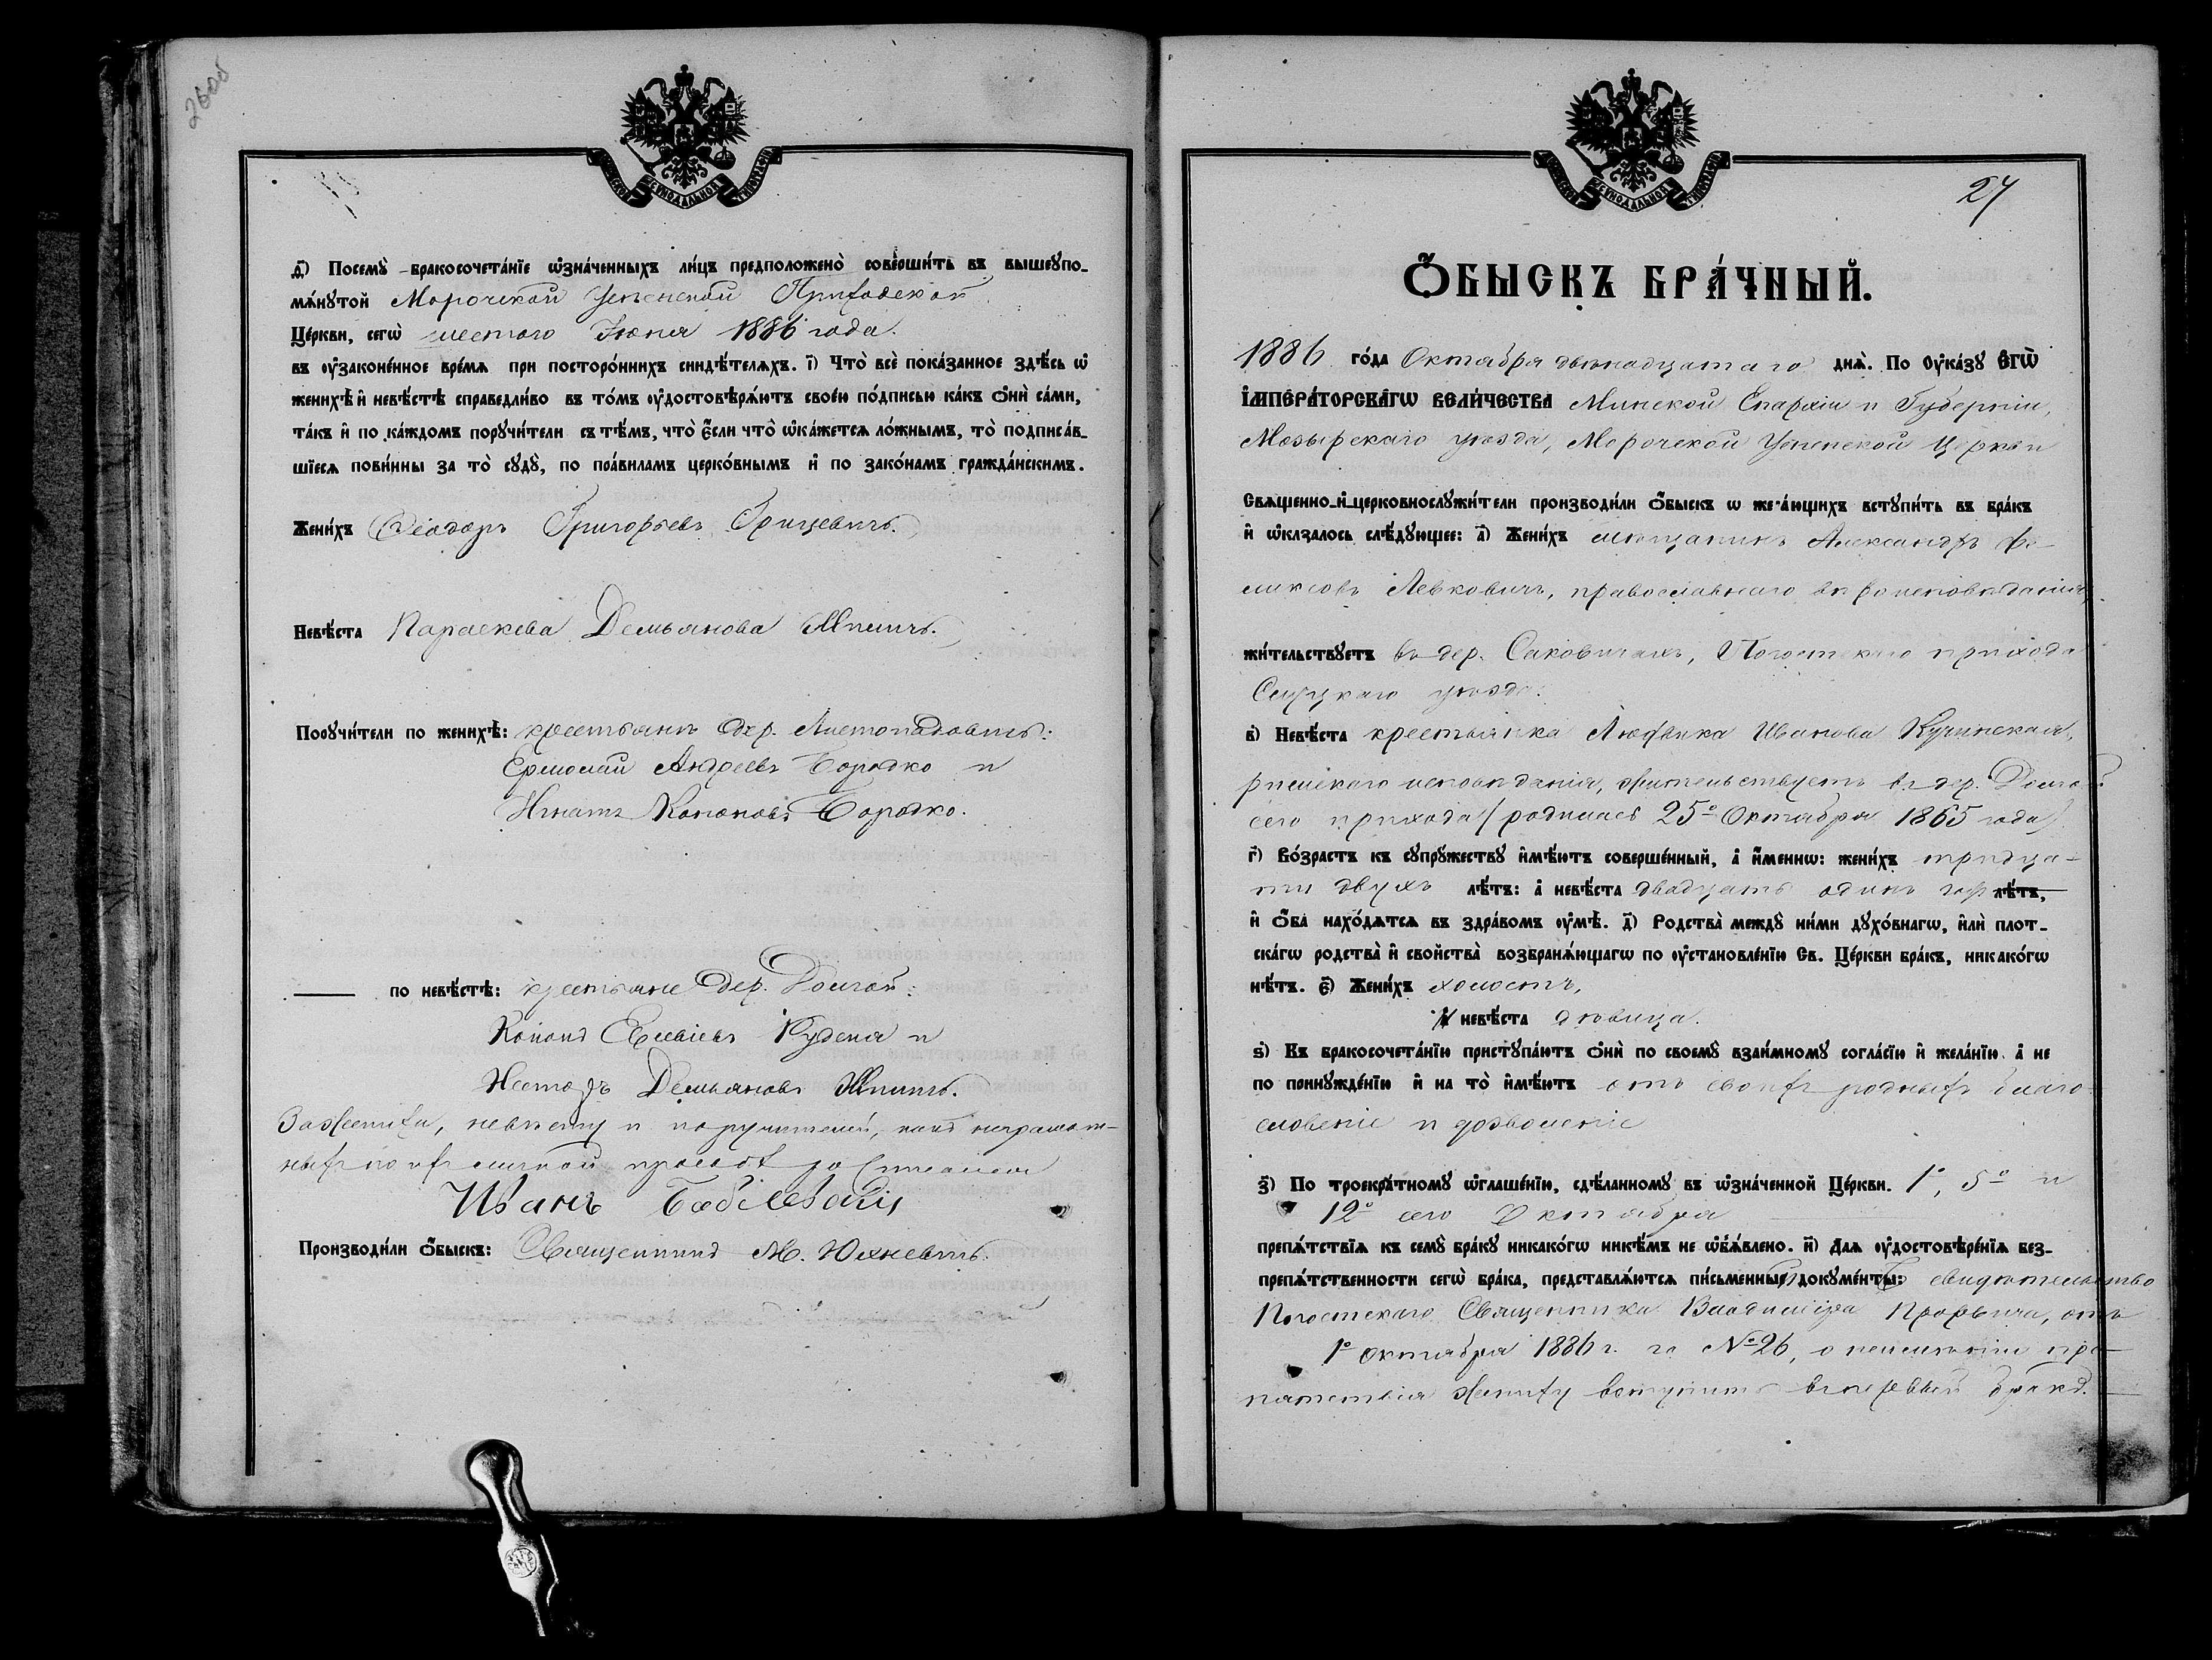 2600
ѳ҃) Посемꙋ̀ бракосочета́нїе ѡ҆зна́ченныхъ ли́цъ предположено̀ соверши́ть въ вышеꙋпо-
мѧ́нꙋтой Морочской Успенской Приходской
Це́ркви, сегѡ̀ шестого Іюня 1886 года.
въ ᲂу҆законе́нное вре́мѧ при посторо́ннихъ свидѣ́телѧхъ. і҃) Что̀ всѐ пока́занное здѣ́сь ѡ҆
женихѣ̀ и҆ невѣ́стѣ справедли́во въ то́мъ ᲂу҆достовѣрѧ́ютъ свое́ю по́дписью ка́къ ѻ҆нѝ са́ми,
та́къ и҆ по ка́ждомъ порꙋчи́тели съ тѣ́мъ, что̀ є҆́сли что̀ ѡ҆ка́жетсѧ ло́жнымъ, то̀ подписа́в-
шїесѧ пови́нны за то̀ сꙋдꙋ̀, по пра́виламъ церко́внымъ и҆ по зако́намъ гражда́нскимъ.
Жени́хъ Ѳеодоръ Григорьевъ Грицевичъ.
Невѣ́ста Параскева Демьянова Шпитъ.
Порꙋчи́тели по женихѣ̀: крестьянъ дер. Листопадовичъ:
Ермолай Андреевъ Бородко и
Игнатъ Кононовъ Бородко.
по невѣ́стѣ: крестьяне дер. Долгой:
Кононъ Евсѣевъ Руденя и
Несторъ Демьяновъ Шпитъ.
За жениха, невѣсту и поручителей, какъ неграмот-
ныхъ по ихъ личной просьбѣ росписался
Иванъ
Производи́ли ѻ҆́быскъ: Священникъ М. Юхневичъ.
СѴНОДАЛЬНОЙ
27
Ѻ҆́БЫСКЪ БРА́ЧНЫЙ.
1886 го́да Октября двѣнадцатаго днѧ̀. По Оу҆ка́зꙋ Є҆ГѠ̀
І҆МПЕРА́ТОРСКАГѠ ВЕЛИ́ЧЕСТВА Минской Епархіи и Губерніи,
Мозырскаго уѣзда, Морочской Успенской Церкви
Свѧще́нно-и҆-церковнослꙋжи́тели производи́ли ѻ҆́быскъ ѡ жела́ющихъ встꙋпи́ть въ бра́къ
и҆ ѡ҆казалось слѣ́дꙋющее: а҃) Жени́хъ мѣщанинъ Александръ Фе-
ликсовъ Левковичъ, православнаго вѣроисповѣданія,
жи́тельствꙋетъ въ дер. Саковичахъ, Погостскаго прихода
Слуцкаго уѣзда.
в҃) Невѣ́ста крестьянка Людвика Иванова Кучинская,
римскаго исповѣданія, жительствуетъ въ дер. Долгой
сего прихода (родилась 25º Октября 1865 года)
г҃) Во́зрастъ къ сꙋпрꙋ́жествꙋ и҆мѣ́ютъ соверше́нный, а҆ и҆́менно: жени́хъ тридца-
ти двухъ лѣ́тъ: а҆ невѣ́ста двадцать одинъ годъ лѣ́тъ,
и҆ ѻ҆́ба нахо́дѧтсѧ въ здра́вомъ ᲂу҆мѣ̀. д҃) Родства̀ междꙋ̀ ни́ми дꙋхо́внагѡ, и҆лѝ плот-
ска́гѡ родства̀ и҆ сво́йства̀ возбранѧ́ющагѡ по ᲂу҆становле́нїю Св. Це́ркви бра́къ, никако́гѡ
нѣ́тъ. є҃) Жени́хъ холостъ,
и҆ невѣ́ста дѣвица.
ѕ҃) Къ бракосочета́нїю пристꙋпа́ютъ ѻ҆нѝ по своемꙋ̀ взаи́мномꙋ согла́сїю и҆ жела́нїю, а҆ не
по принꙋжде́нїю и҆ на то̀ и҆мѣ́ютъ отъ своихъ родныхъ благо-
словеніе и дозволеніе
з҃) По троекра́тномꙋ ѡ҆глаше́нїю, сдѣ́ланномꙋ въ ѡ҆зна́ченной Це́ркви. 1º, 5º и
12º сего Октября
препѧ́тствїѧ къ семꙋ̀ бра́кꙋ никако́гѡ никѣ́мъ не ѡ҆б̾ѧ́влено. и҃) Длѧ ᲂу҆достовѣре́нїѧ без-
препѧ́тственности сегѡ̀ бра́ка, представлѧ́ютсѧ пи́сьменные докꙋме́нты: свидѣтельство
Погостскаго Священника Владиміра, отъ
1º Октября 1886 г. за № 26, о неимѣніи пре-
пятствія жениху вступить въ первый бракъ.